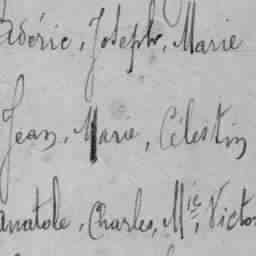 adéric, Joseph, Marie
Jean, Marie, Célestin
Anatole, Charles, Mie, Victo